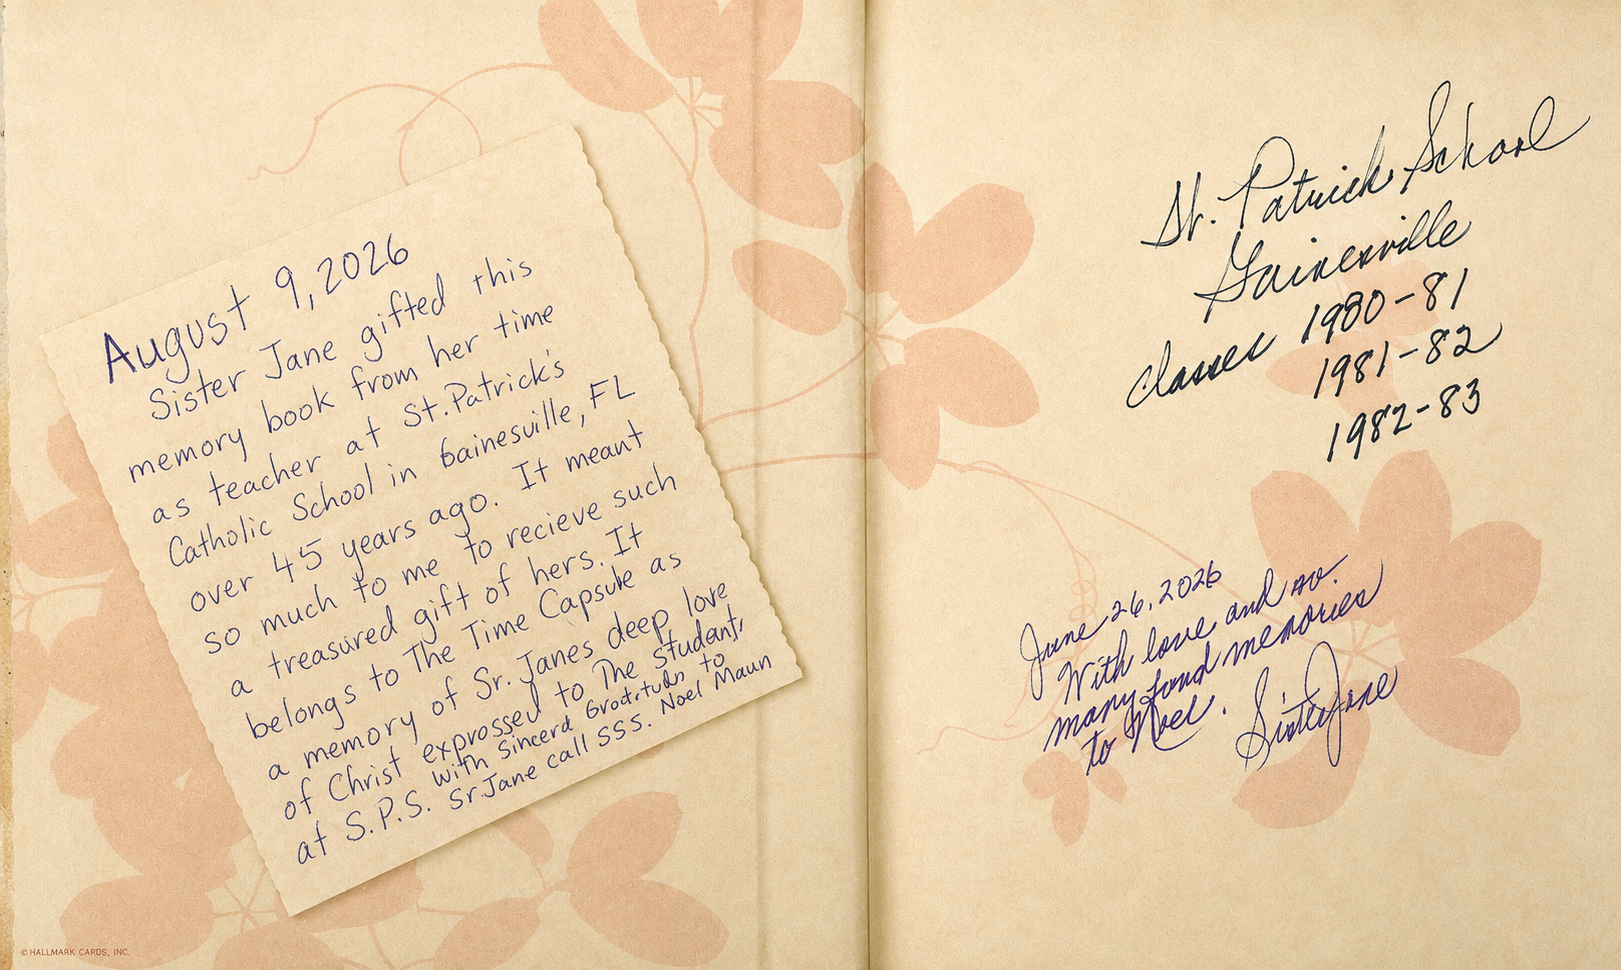 August 9, 2026
Sister Jane gifted this
memory book from her time
as teacher at St. Patrick's
Catholic School in Gainesville, FL
over 45 years ago. It meant
so much to me to recieve such
a treasured gift of hers. It
belongs to The Time Capsule as
a memory of Sr. Janes deep love
of Christ expressed to The Student,
at S.P.S. with Sincere to
Sr. Jane call SSS. Noel Maun
© HALLMARK CARDS, INC.
St. Patrick School
Gainesville
classes 1980-81
1981-82
1982-83
June 26, 2026
With love and so
many fond memories
to Noel.
Sister Jane